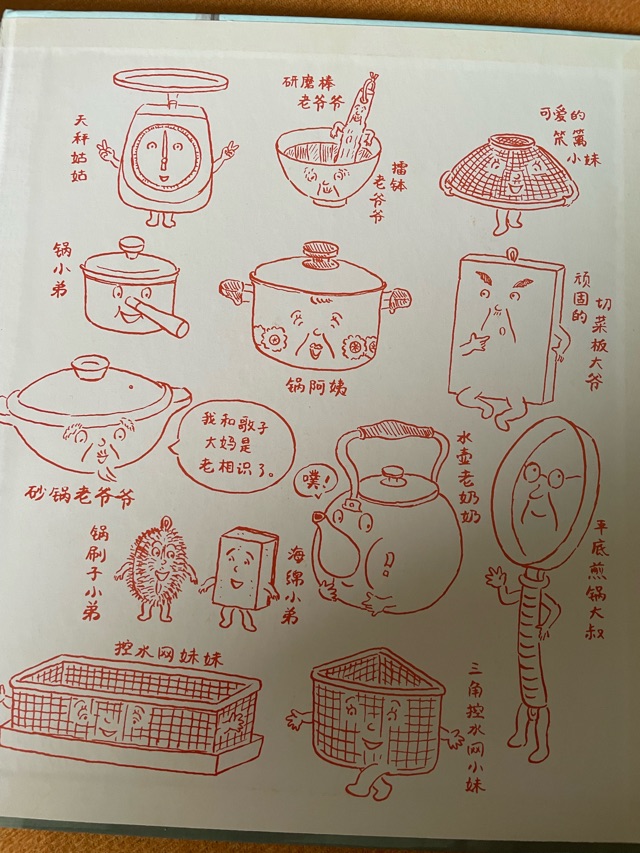 天秤姑姑
研磨棒
老爷爷
擂钵
老爷爷
可爱的
笊篱
小妹
锅小弟
锅阿姨
顽固的
切菜板大爷
砂锅老爷爷
我和歌子
大妈是
老相识了。
噗！
水壶老奶奶
平底煎锅大叔
锅刷子小弟
海绵小弟
控水网妹妹
三角控水网小妹